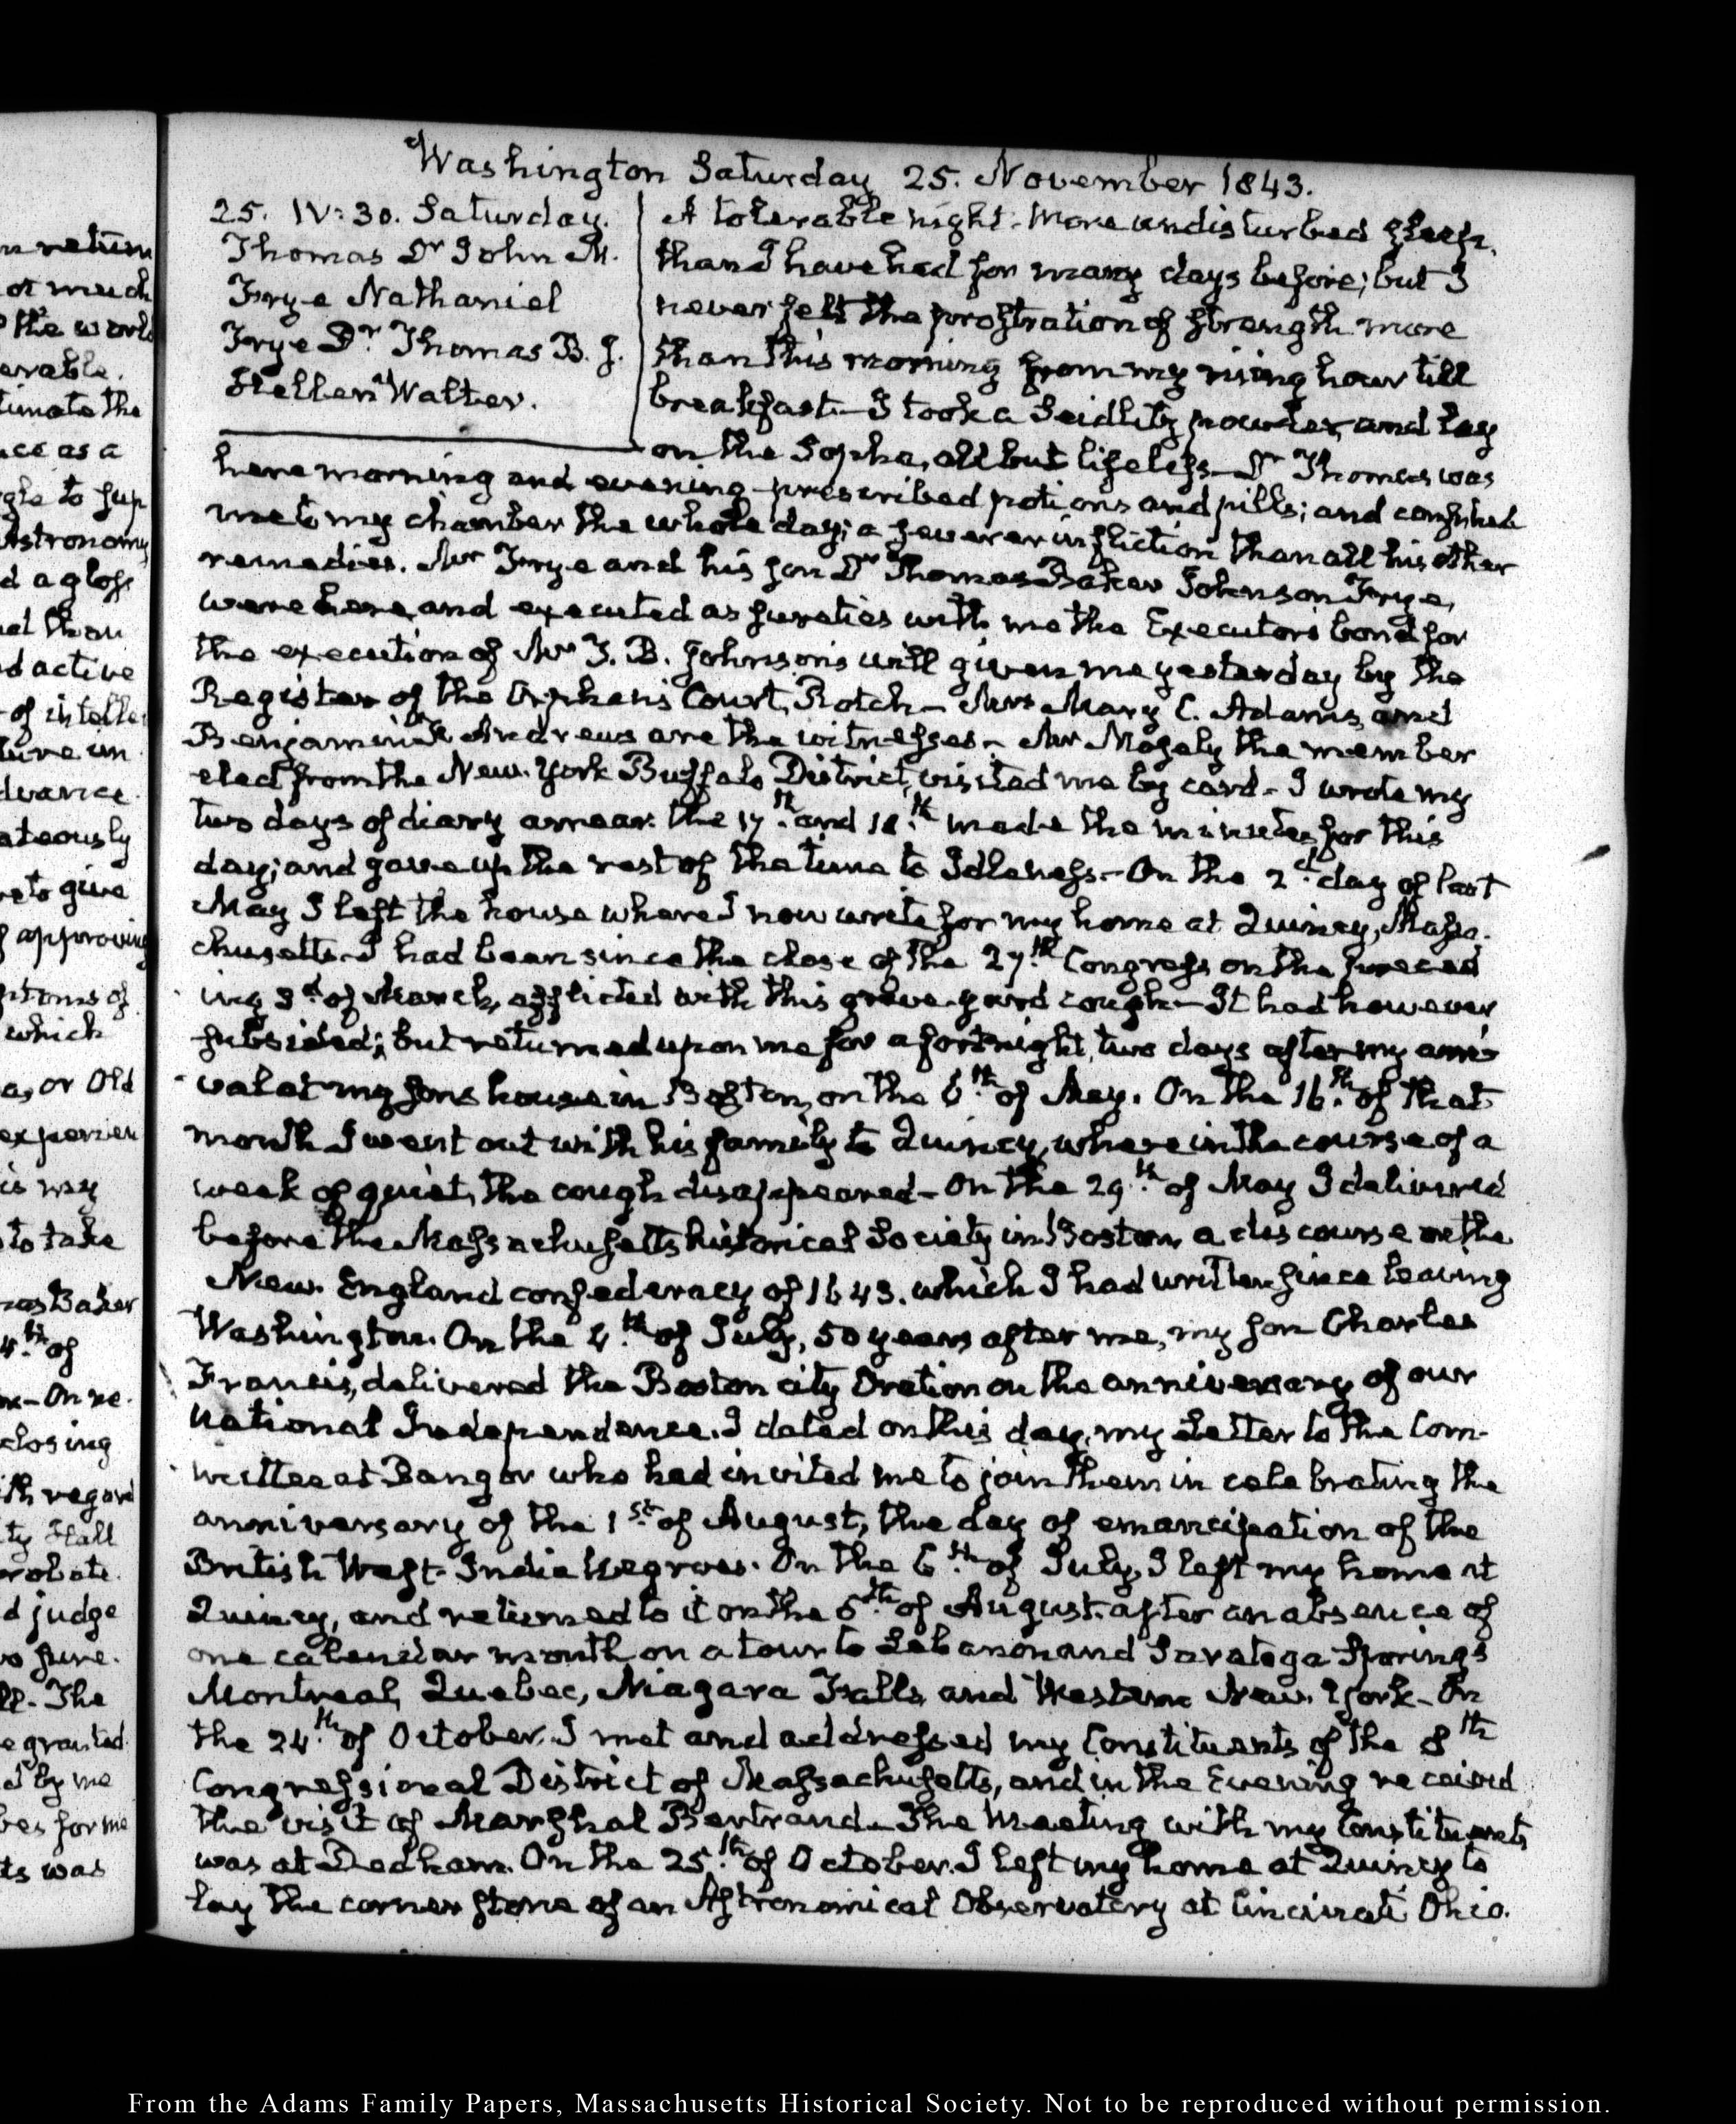 Washington Saturday 25. November 1843.
25. IV:30. Saturday.
Thomas Dr John M.
Frye Nathaniel
Frye Dr Thomas B. J.
Walter.
A tolerable night. More undisturbed sleep,
than I have had for many days before; but I
never felt the prostration of strength more
than this morning from my rising hour till
breakfast— I took a Seidlitz powder, and lay
on the Sopha, all but lifeless— Dr Thomas was
here morning and evening— prescribed potions and pills; and confined
me to my chamber the whole day; a severer infliction than all his other
remedies. Mr Frye and his son Dr Thomas Baker Johnson Frye,
were here, and executed as sureties with me the Executors bond for
the execution of Mr T. B. Johnson's will given me yesterday by the
Register of the Orphans Court, Rotch— Mrs Mary C. Adams, and
Benjamin Andrews are the witnesses— Mr Mosely the member
elect from the New-York Buffalo District, visited me by card— I wrote my
two days of diary arrear. the 17th. and 18th. made the minutes for this
day; and gave up the rest of the time to Idleness.— On the 2d. day of last
May I left the house where I now write for my home at Quincy, Massa-
chusetts— I had been since the close of the 27th. Congress on the preced
ing 3d. of March, afflicted with this grave-yard cough— It had however
subsided; but returned upon me for a fortnight, two days after my arri-
val at my sons house in Boston, on the 6th. of May. On the 16th. of that
month I went out with his family to Quincy, where in the course of a
week of quiet, the cough disappeared— On the 29th. of May I delivered
before the Massachusetts historical Society in Boston a discourse on the
New-England confederacy of 1643. which I had written since leaving
Washington. On the 4th. of July, 50 years after me, my son Charles
Francis, delivered the Boston city Oration on the anniversary of our
National Independence. I dated on this day, my Letter to the Com-
mittee at Bangor who had invited me to join them in celebrating the
anniversary of the 1st. of August, the day of emancipation of the
British West-India Negroes. On the 6th. of July, I left my home at
Quincy, and returned to it on the of August, after an absence of
one calendar month on a tour to Lebanon and Saratoga Springs
Montreal, Quebec, Niagara Falls, and Western New-York— On
the 24th. of October. I met and addressed my Constituents of the 8th
Congressional District of Massachusetts, and in the Evening received
the visit of Marshal Bertrand— The Meeting with my Constituents
was at Dedham. On the 25th. of October. I left my home at Quincy to
lay the corner stone of an Astronomical Observatory at Cincinati Ohio.
From the Adams Family Papers, Massachusetts Historical Society. Not to be reproduced without permission.